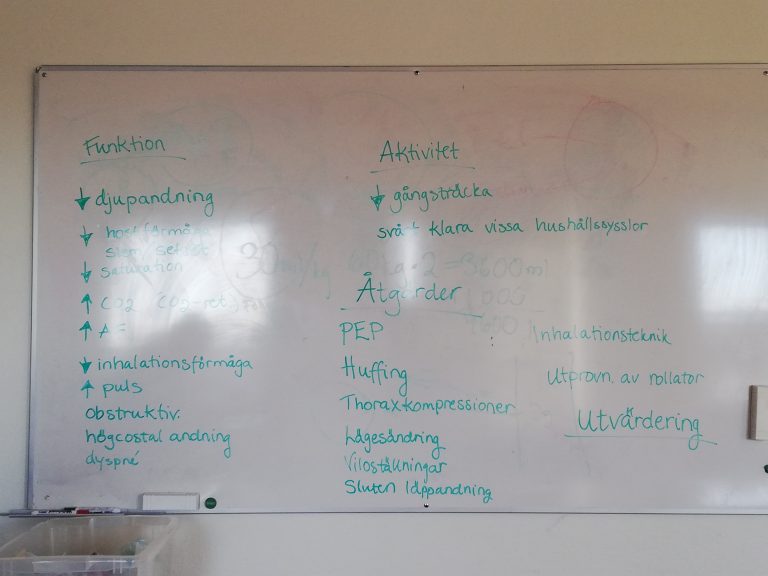 Funktion
↓ djupandning
↓ hostförmåga
slem
↓ saturation
↑ CO2 (CO2-ret.)
↑ AF
↓ inhalationsförmåga
↑ puls
obstruktiv.
högcostal andning
dyspné
Aktivitet
↓ gångsträcka
svårt klara vissa hushållssysslor
30ml/kg 60kg·2=3600ml
Åtgärder
1000
4600
PEP
Huffing
Thoraxkompressioner
Lägesändring
Viloställningar
Sluten läppandning
Inhalationsteknik
Utprovn. av rollator
Utvärdering